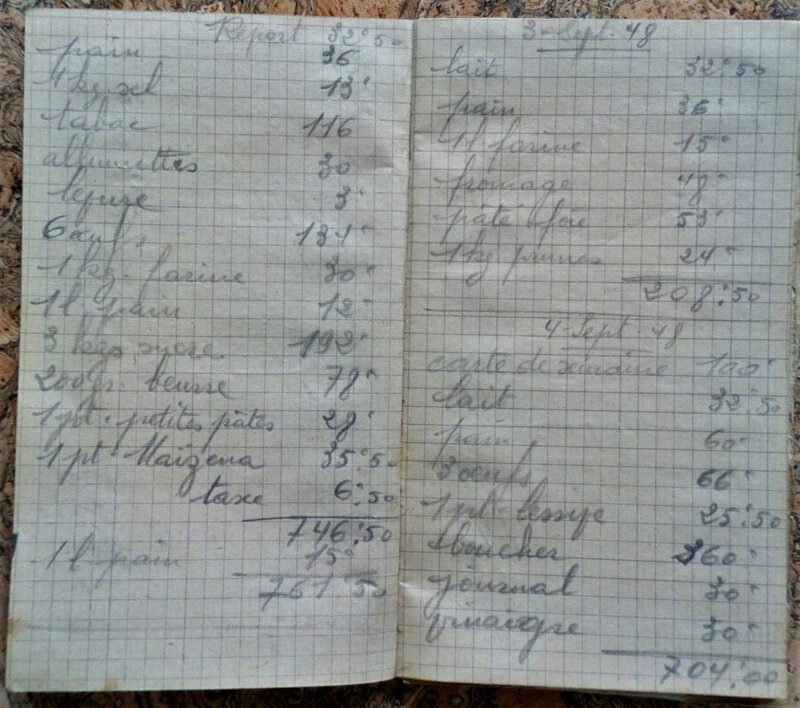 Report 32:50
pain 36
1 kg sel 13"
tabac 116
allumettes 30
levure 3"
6 œufs 134"
1 kg. farine 30"
1 l. pain 12"
3 kgs sucre 192"
200 gr. beurre 78"
1 pt. petites pâtes 28"
1 pt. Maïzena 35:50
taxe 6:50
746:50
1 l. pain 15"
761:50
3-Sept-48
lait 32:50
pain 36"
1 l farine 15"
fromage 48"
pâté foie 53"
1 kg prunes 24"
208:50
4-Sept-48
carte de semaine 100"
lait 32:50
pain 60"
3 œufs 66"
1 pt. lessive 25:50
boucher 360"
journal 30"
vinaigre 30"
704:00